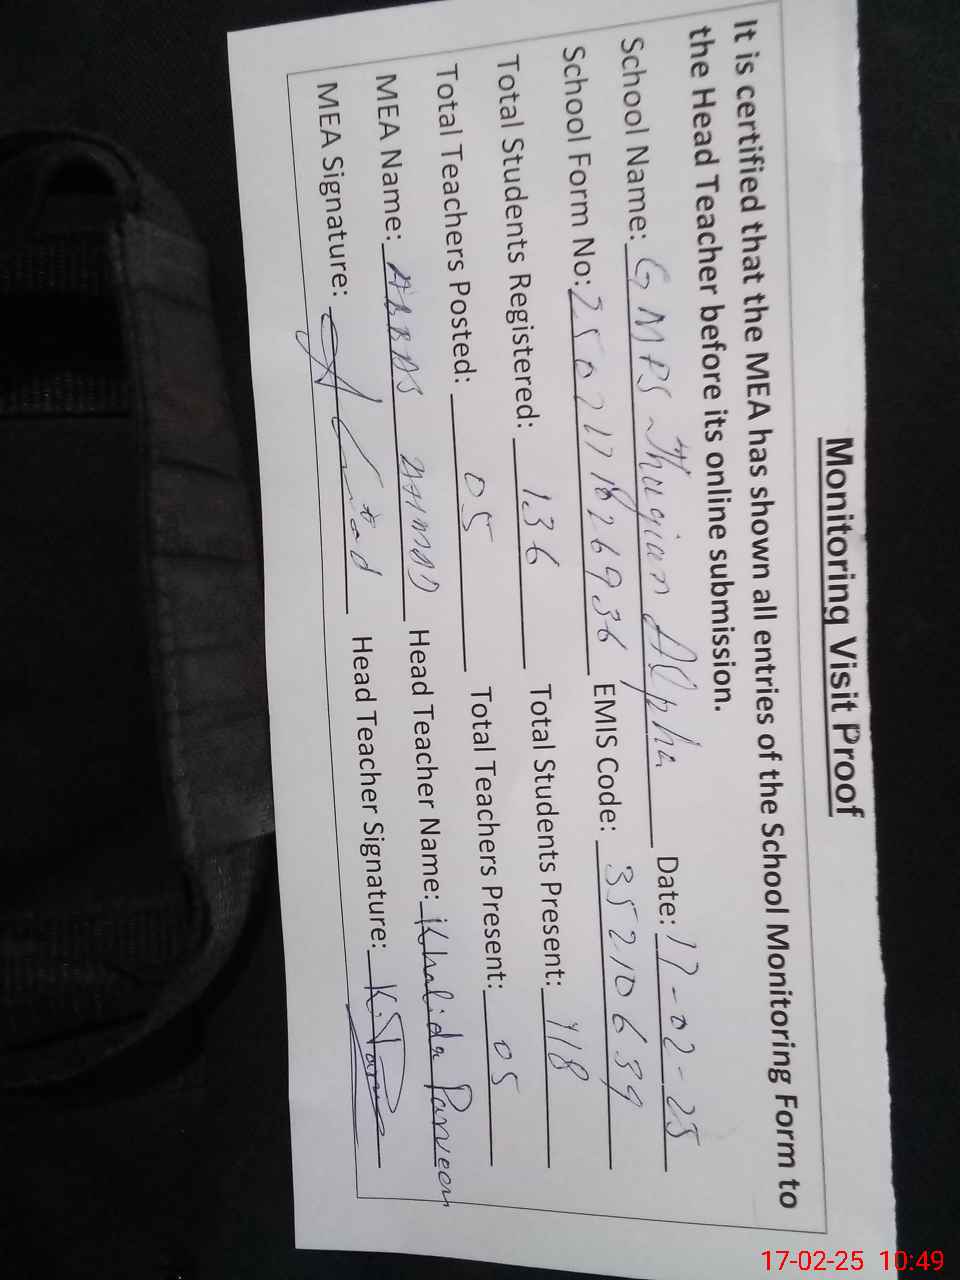 Monitoring Visit Proof
It is certified that the MEA has shown all entries of the School Monitoring Form to
the Head Teacher before its online submission.
School Name: GMPS Thugian Alpha Date: 17-02-25
School Form No: 2502171826936 EMIS Code: 35210639
Total Students Registered: 136 Total Students Present: 118
Total Teachers Posted: 05 Total Teachers Present: 05
MEA Name: ABBAS AHMAD Head Teacher Name: Khalida Parveen
MEA Signature: Head Teacher Signature:
17-02-25 10:49